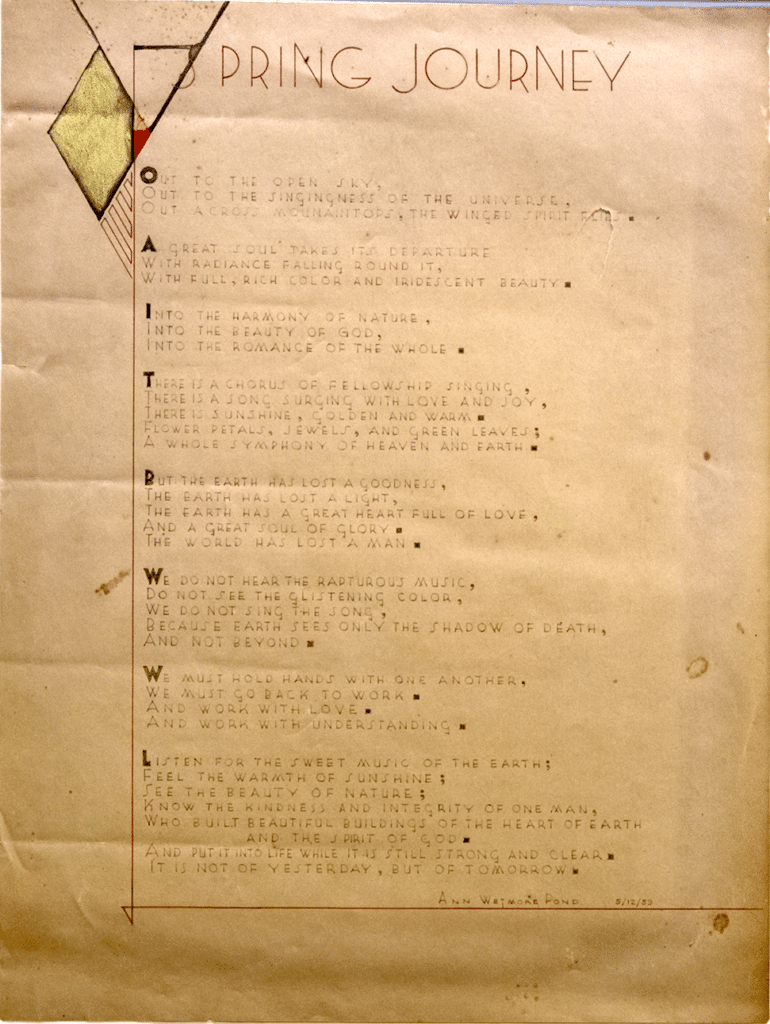 SPRING JOURNEY
OUT TO THE OPEN SKY,
OUT TO THE SINGINGNESS OF THE UNIVERSE,
OUT ACROSS MOUNAINTOPS, THE WINGED SPIRIT FLIES.
A GREAT SOUL TAKES ITS DEPARTURE
WITH RADIANCE FALLING ROUND IT,
WITH FULL, RICH COLOR AND IRIDESCENT BEAUTY.
INTO THE HARMONY OF NATURE,
INTO THE BEAUTY OF GOD,
INTO THE ROMANCE OF THE WHOLE.
THERE IS A CHORUS OF FELLOWSHIP SINGING,
THERE IS A SONG SURGING WITH LOVE AND JOY,
THERE IS SUNSHINE, GOLDEN AND WARM.
FLOWER PETALS, JEWELS, AND GREEN LEAVES;
A WHOLE SYMPHONY OF HEAVEN AND EARTH.
BUT THE EARTH HAS LOST A GOODNESS,
THE EARTH HAS LOST A LIGHT,
THE EARTH HAS A GREAT HEART FULL OF LOVE,
AND A GREAT SOUL OF GLORY.
THE WORLD HAS LOST A MAN.
WE DO NOT HEAR THE RAPTUROUS MUSIC,
DO NOT SEE THE GLISTENING COLOR,
WE DO NOT SING THE SONG,
BECAUSE EARTH SEES ONLY THE SHADOW OF DEATH,
AND NOT BEYOND.
WE MUST HOLD HANDS WITH ONE ANOTHER,
WE MUST GO BACK TO WORK.
AND WORK WITH LOVE.
AND WORK WITH UNDERSTANDING.
LISTEN FOR THE SWEET MUSIC OF THE EARTH;
FEEL THE WARMTH OF SUNSHINE;
SEE THE BEAUTY OF NATURE;
KNOW THE KINDNESS AND INTEGRITY OF ONE MAN,
WHO BUILT BEAUTIFUL BUILDINGS OF THE HEART OF EARTH
AND THE SPIRIT OF GOD.
AND PUT IT INTO LIFE WHILE IT IS STILL STRONG AND CLEAR.
IT IS NOT OF YESTERDAY, BUT OF TOMORROW.
ANN WETMORE POND 5/12/59